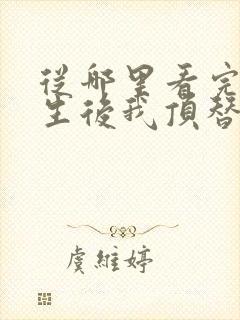 從哪里看完
生後我頂替
虞維婷